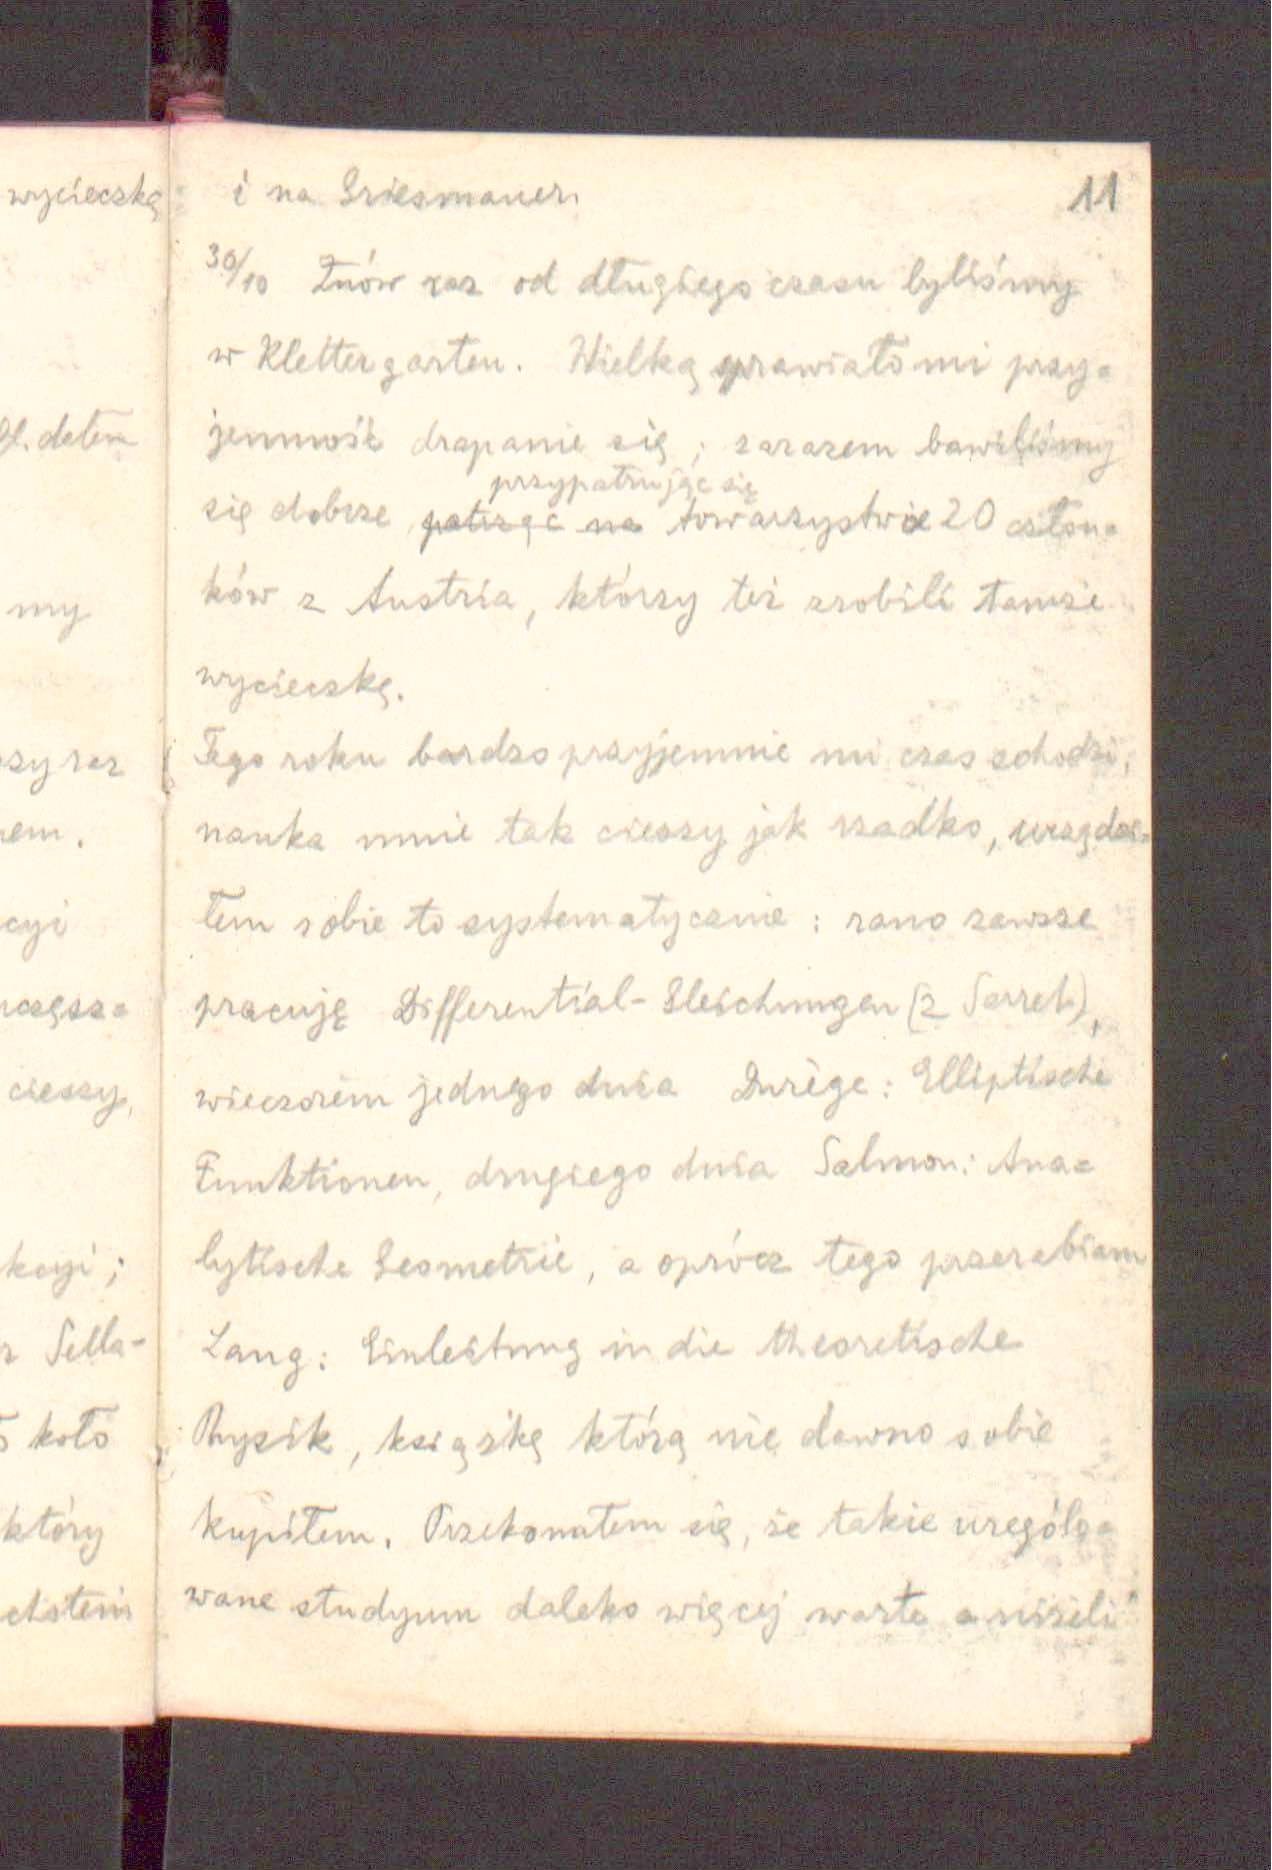 wycieczkę
Of. dełem
my
szyrez
nem.
cyi
częsz=
cieszy,
kcyi;
r Sella-
koło
który
chstein
i na Griesmauer. 11
30/10 Znów raz od długiego czasu byliśmy
w Klettergarten. Wielką sprawiało mi przy=
jemność drapanie się; zarazem bawiliśmy
przypatrując się
się dobrze patrząc na towarzystwie 20 człon=
ków z Austria, którzy też zrobili tamże
wycieczkę.
Tego roku bardzo przyjemnie mi czas schodzi,
nauka mnie tak cieszy jak rzadko, urządzi=
łem sobie to systematycznie: rano zawsze
pracuję Differential-Gleichungen (z Serret),
wieczorem jednego dnia Durège: Elliptische
Funktionen, drugiego dnia Salmon: Ana=
lytische Geometrie, a oprócz tego przerabiam
Lang: Einleitung in die theoretische
Physik, książkę którą nie dawno sobie
kupiłem. Przekonałem się, że takie urególo=
wane studyum daleko więcej warte aniżeli